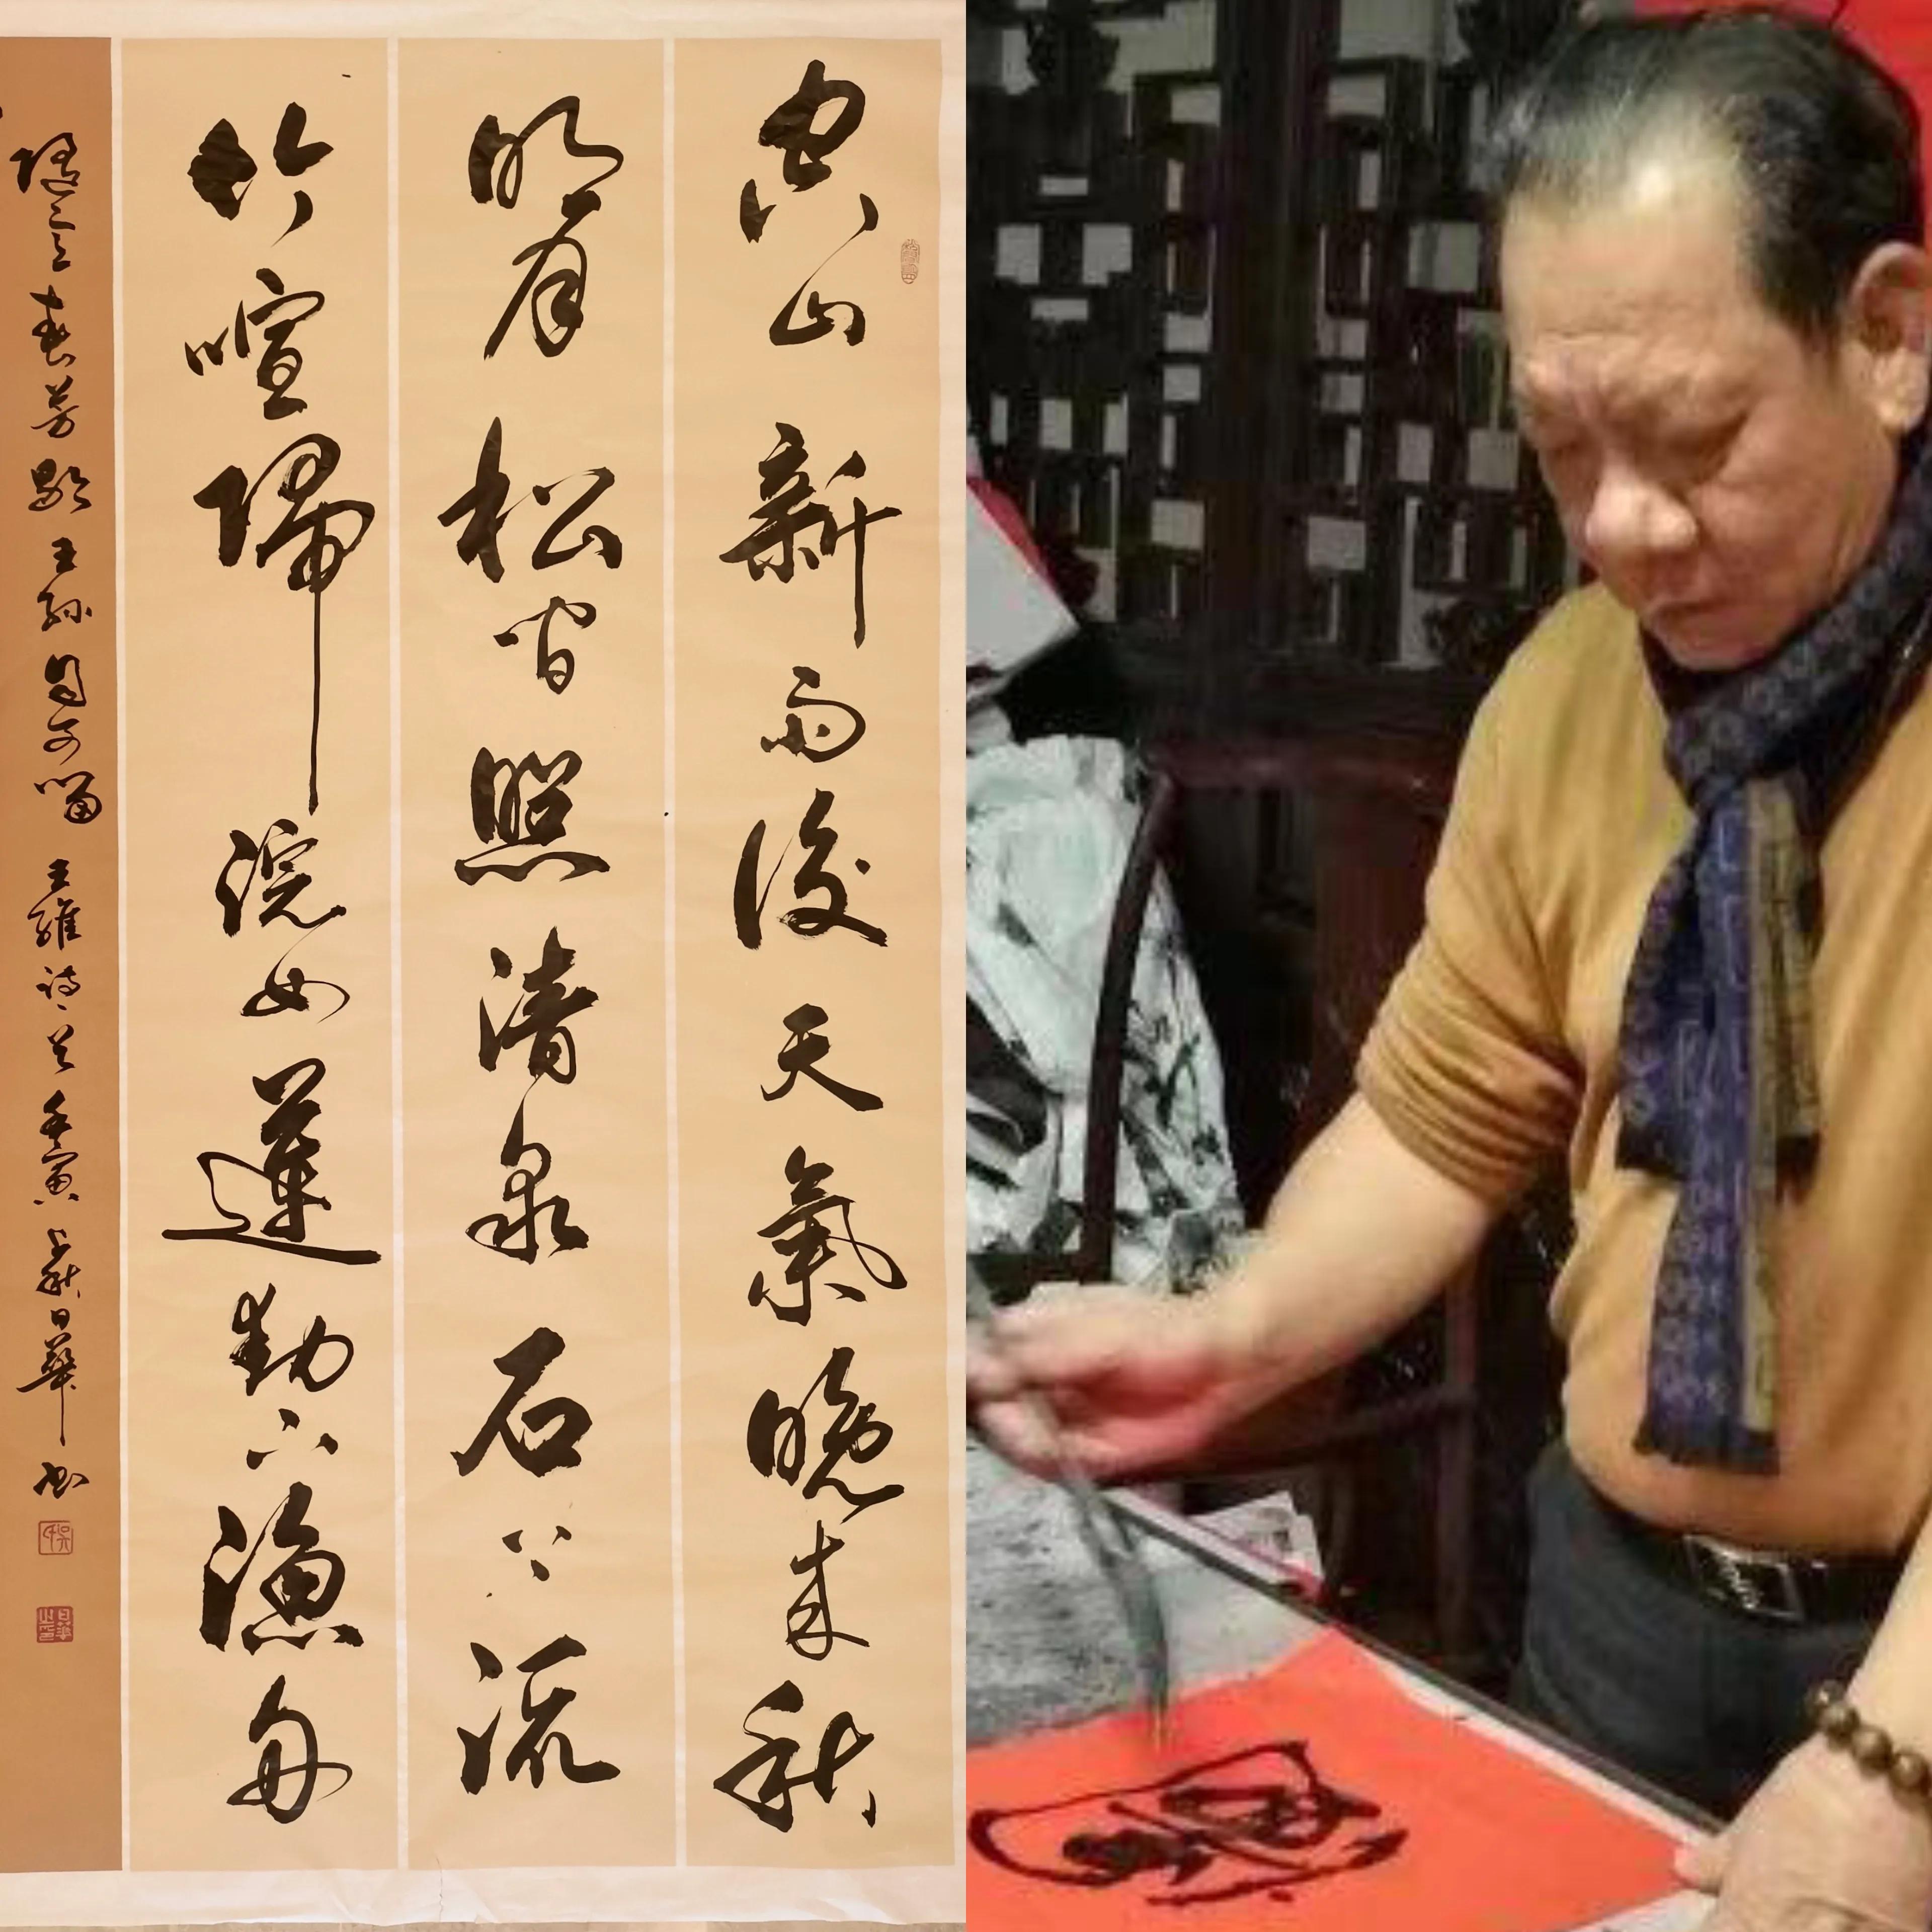 空山新雨後天氣晚来秋
明月松間照清泉石上流
竹喧歸浣女蓮動下漁舟
隨意春芳歇王孫自可留 王維詩一首 壬寅 秋日華书
日華之印